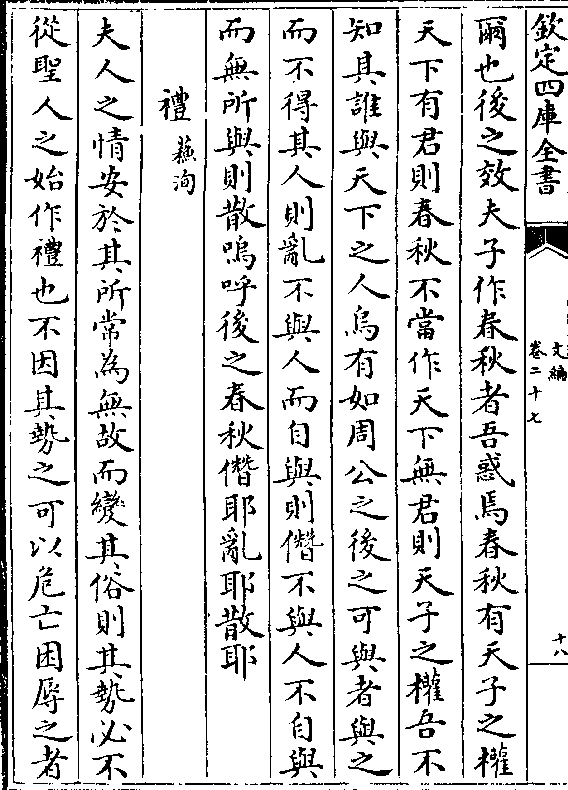 欽定四庫全書
文編
卷二十七
十八
爾也後之效夫子作春秋者吾惑焉春秋有天子之權
天下有君則春秋不當作天下無君則天子之權吾不
知其誰與天下之人烏有如周公之後之可與者與之
而不得其人則亂不與人而自與則僭不與人不自與
而無所與則散嗚呼後之春秋僭耶亂耶散耶
禮 蘇洵
夫人之情安於其所常為無故而變其俗則其勢必不
從聖人之始作禮也不因其勢之可以危亡困辱之者